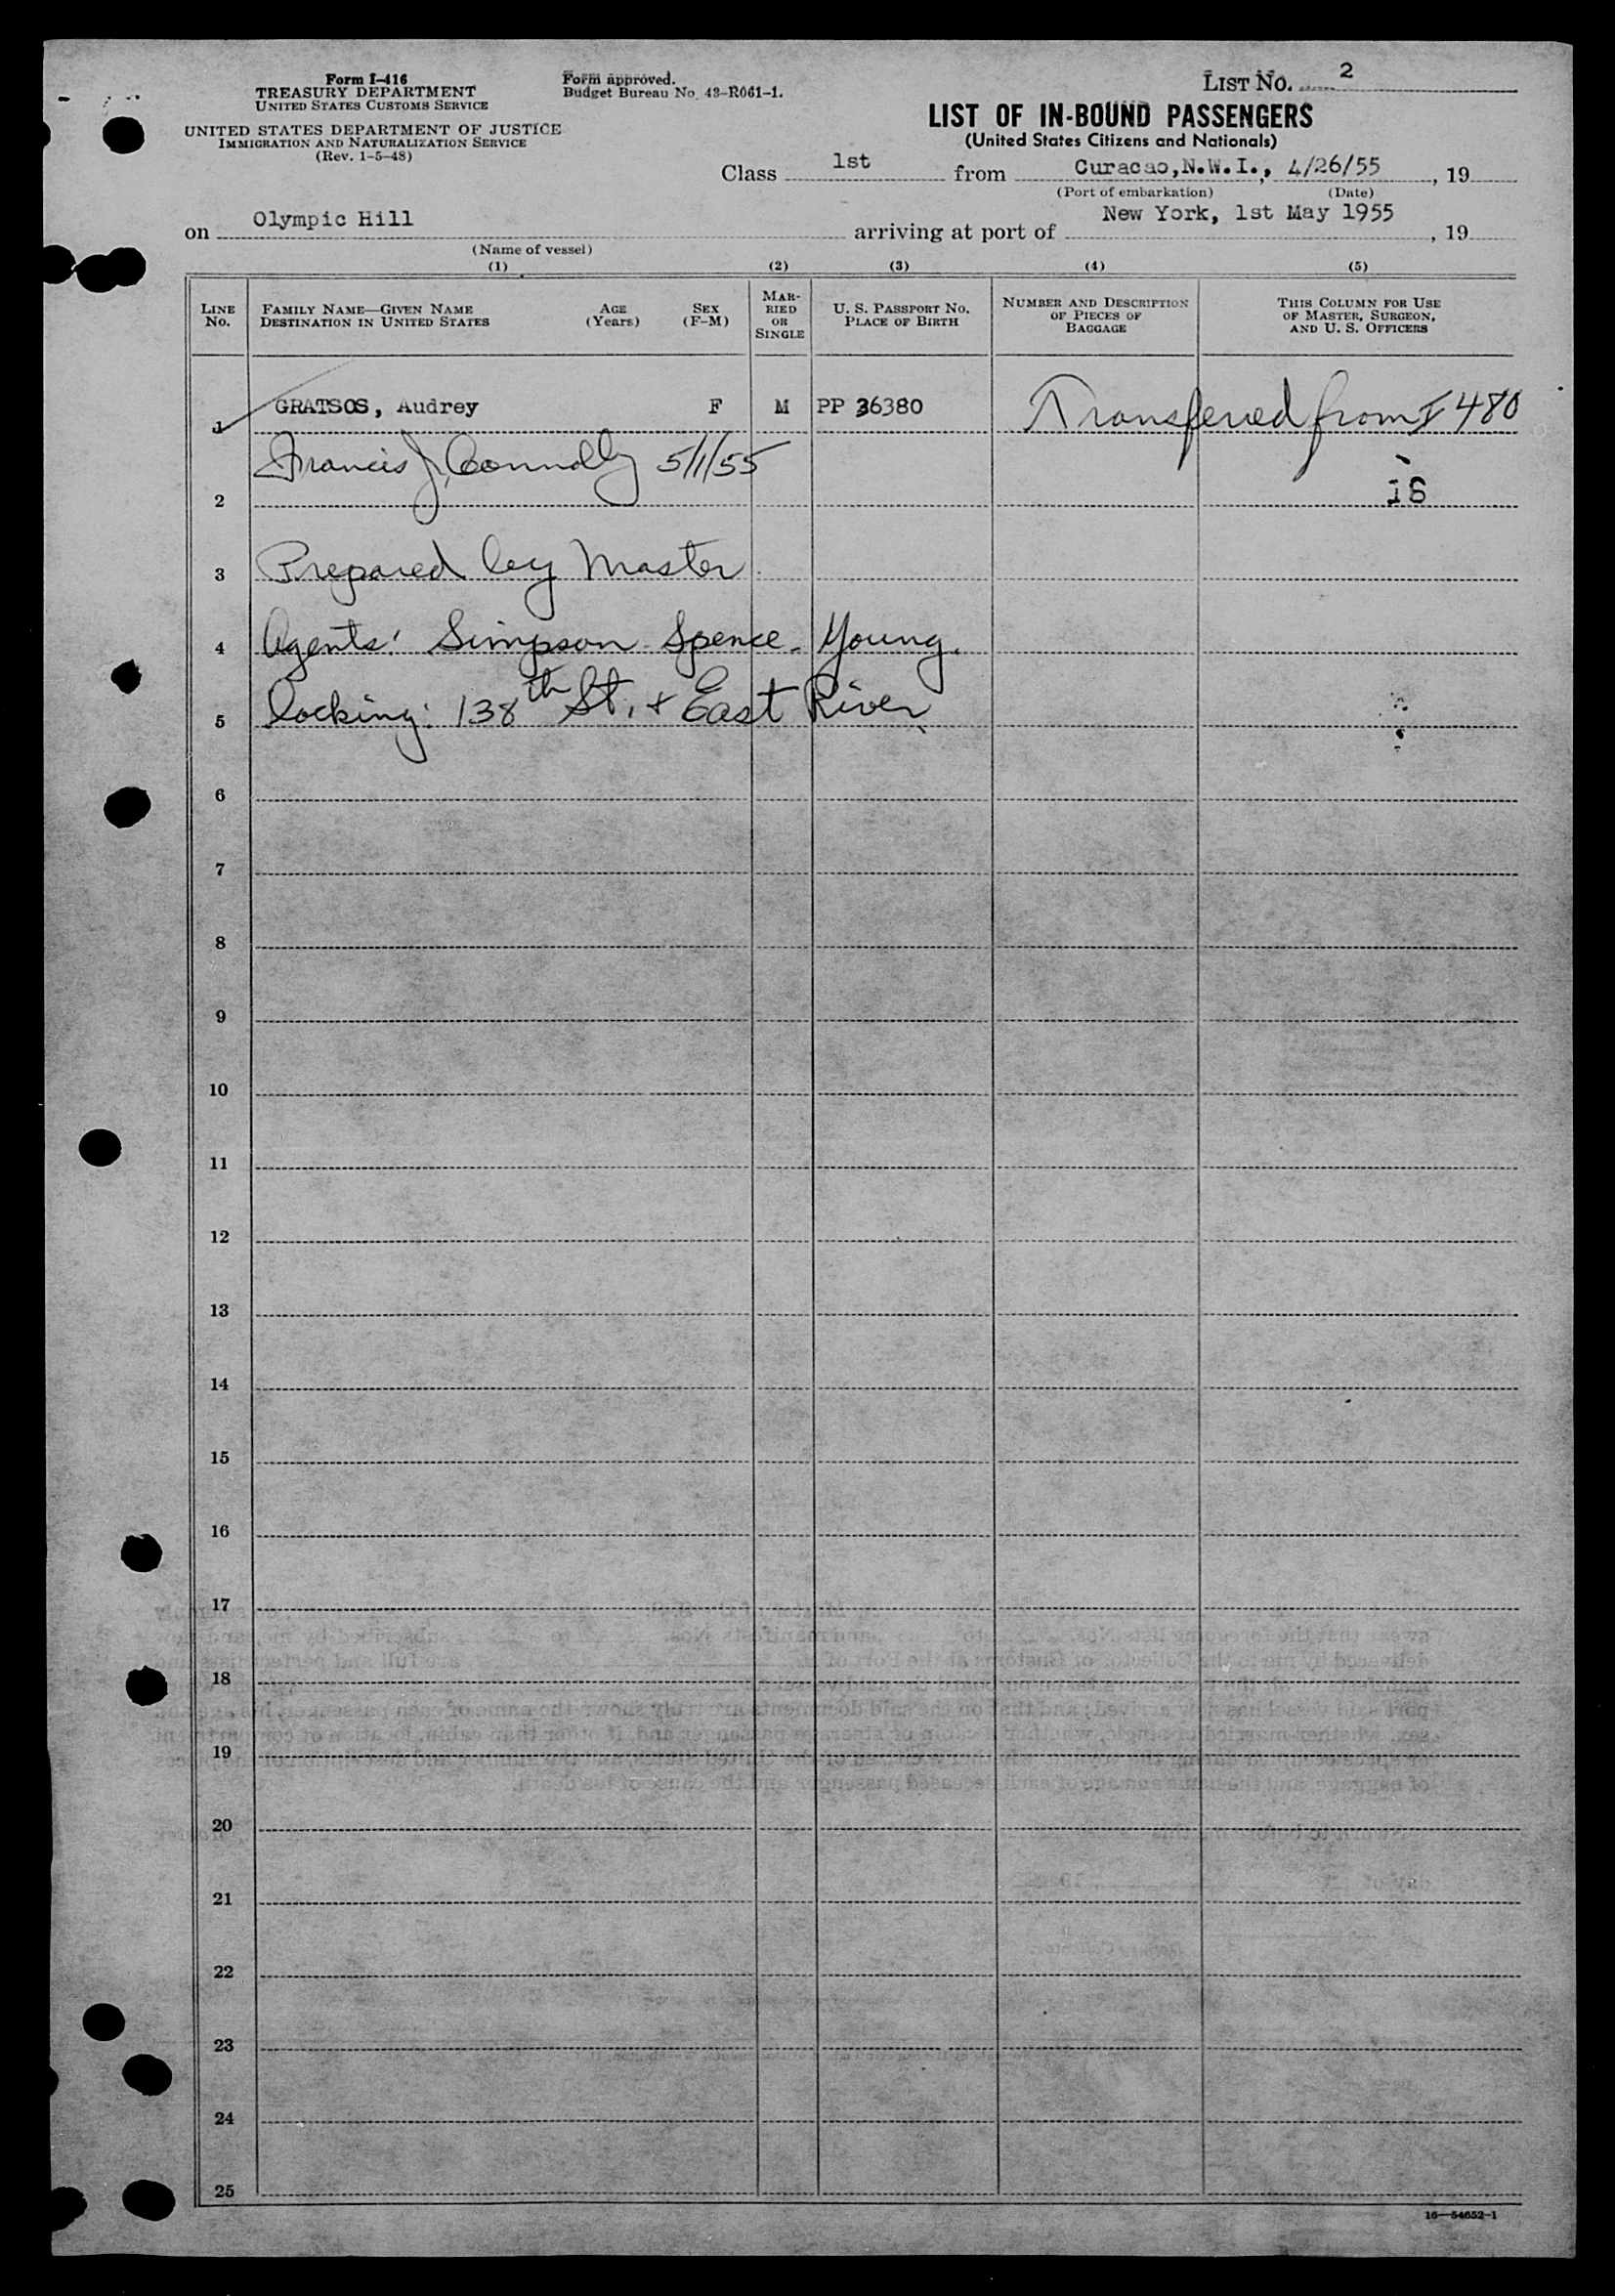 Form I-416
TREASURY DEPARTMENT
UNITED STATES CUSTOMS SERVICE
UNITED STATES DEPARTMENT OF JUSTICE
IMMIGRATION AND NATURALIZATION SERVICE
(Rev. 1-5-48)
Form approved.
Budget Bureau No. 43-R061-1.
LIST NO. 2
LIST OF IN-BOUND PASSENGERS
(United States Citizens and Nationals)
Class 1st from Curacao,N.W.I., 4/26/55, 19
(Port of embarkation) (Date)
on Olympic Hill arriving at port of New York, 1st May 1955, 19
(Name of vessel)
(1) (2) (3) (4) (5)
LINE NO.
FAMILY NAME—GIVEN NAME
DESTINATION IN UNITED STATES
AGE (Years)
SEX (F-M)
MAR-
RIED
OR
SINGLE
U. S. PASSPORT NO.
PLACE OF BIRTH
NUMBER AND DESCRIPTION
OF PIECES OF
BAGGAGE
THIS COLUMN FOR USE
OF MASTER, SURGEON,
AND U. S. OFFICERS
1 GRATSOS, Audrey F M PP 36380 Transferred from I 480
2 Francis J. Connolly 5/1/55
3 Prepared by Master
4 Agents: Simpson Spence - Young.
5 Docking: 138th St. + East River
6
7
8
9
10
11
12
13
14
15
16
17
18
19
20
21
22
23
24
25
16—54652-1